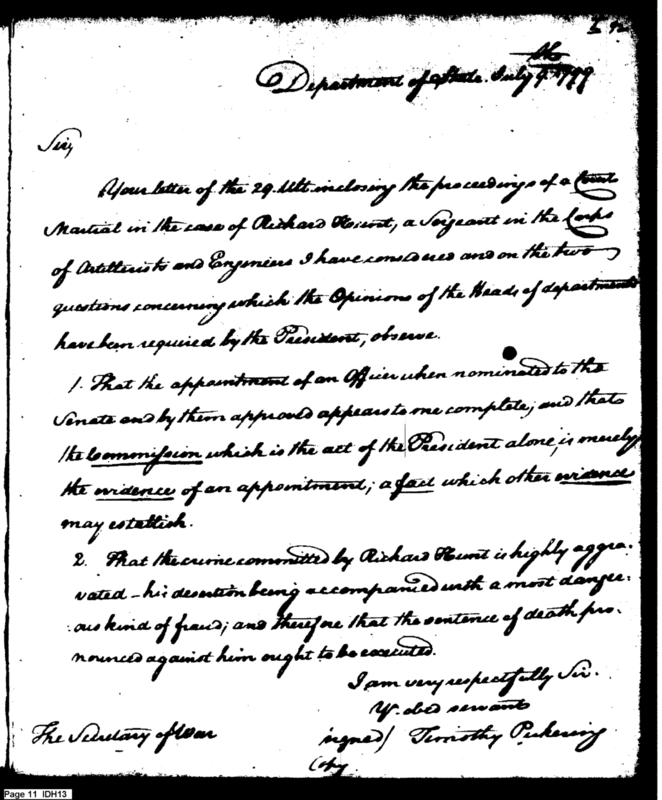 Department of State. July 9. 1799
Sir,
Your letter of the 29. Ult. inclosing the proceedings of a Court
Martial in the case of Richard Hunt, a Sergeant in the Corps
of Artillerists and Engineers I have considered and on the two
questions concerning which the Opinions of the Heads of departments
have been required by the President, observe.
1. That the appointment of an Officer when nominated to the
Senate and by them approved appears to me complete; and that
the Commission which is the act of the President alone, is merely
the evidence of an appointment; a fact which other evidence
may establish.
2. That the crime committed by Richard Hunt is highly aggra-
vated - his desertion being accompanied with a most danger-
ous kind of fraud; and therefore that the sentence of death pro-
nounced against him ought to be executed.
I am very respectfully Sir.
Yr. obed servant
signed) Timothy Pickering
The Secretary of War
Copy
Page 11 IDH13